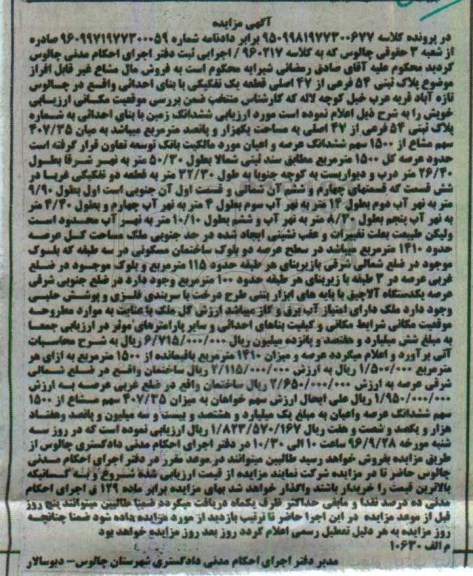 آگهی مزایده
در پرونده کلاسه ۹۵۰۹۹۸۱۹۷۷۳۰۰۶۷۷ برابر دادنامه شماره ۹۶۰۹۹۷۱۹۷۷۳۰۰۰۵۹ صادره
از شعبه ۳ حقوقی چالوس که به کلاسه ۹۶۰۲۱۷ / اجرایی ثبت دفتر اجرای احکام مدنی چالوس
گردید محکوم علیه آقای صادق رمضانی شیرایه محکوم است به فروش مال مشاع غیر قابل افراز
موضوع پلاک ثبتی ۵۴ فرعی از ۴۷ اصلی قطعه یک تفکیکی با بنای احداثی واقع در چالوس
تازه آباد قریه عرب خیل کوچه لاله که کارشناس منتخب ضمن بررسی موقعیت مکانی ارزیابی
خویش را به شرح ذیل اعلام نموده است مورد ارزیابی ششدانگ زمین با بنای احداثی به شماره
پلاک ثبتی ۵۴ فرعی از ۴۷ اصلی به مساحت یکهزار و پانصد مترمربع میباشد به میزان ۴۰۷/۳۵
سهم مشاع از ۱۵۰۰ سهم ششدانگ عرصه و اعیان مورد مالکیت بانک توسعه تعاون قرار گرفته است
حدود عرصه کل ۱۵۰۰ مترمربع مطابق سند ثبتی شمالا بطول ۵۰/۳۰ متر به نهر شرقا بطول
۲۶/۴۰ متر درب و دیواریست به کوچه جنوبا به طول ۳۲/۳۰ متر به قطعه دو تفکیکی غربا در
شش قسمت که قسمتهای چهارم و ششم آن شمالی و قسمت اول آن جنوبی است اول بطول ۹/۹۰
متر به نهر آب دوم بطول ۱۴ متر به نهر آب سوم بطول ۴ متر به نهر آب چهارم و بطول ۴/۴۰ متر
به نهر آب پنجم بطول ۸/۳۰ متر به نهر آب و ششم بطول ۱۰/۱۰ متر به نهر آب محدود است
ولیکن طبیعت بعلت تغییرات و عقب نشینی ایجاد شده در حد جنوبی ملک مساحت کل عرصه
حدود ۱۴۱۰ مترمربع میباشد در سطح عرصه دو بلوک ساختمان مسکونی در سه طبقه که بلوک
موجود در ضلع شمالی شرقی بازیربنای هر طبقه حدود ۱۱۵ مترمربع و بلوک موجود در ضلع
غربی عرصه در ۳ طبقه با زیربنای هر طبقه حدود ۱۰۰ مترمربع وجود دارد در ضلع جنوبی شرقی
عرصه یکدستگاه آلاچیق با پایه های ابزار بتنی طرح درخت با سربندی فلزی و پوشش حلبی
وجود دارد ملک دارای امتیاز آب برق و گاز میباشد ارزش کل ملک با عنایت به موارد مطروحه
موقعیت مکانی شرایط مکانی و کیفیت بناهای احداثی و سایر پارامترهای موثر در ارزیابی جمعا
به مبلغ شش میلیارد و هفتصد و پانزده میلیون ریال ۶/۷۱۵/۰۰۰/۰۰۰ ریال به شرح محاسبات
آتی برآورد و اعلام میگردد عرصه و میزان ۱۴۱۰ مترمربع باقیمانده از ۱۵۰۰ مترمربع به ازای هر
مترمربع ۱/۵۰۰/۰۰۰ ریال به ارزش ۲/۱۱۵/۰۰۰/۰۰۰ ریال ساختمان واقع در ضلع شمالی
شرقی عرصه به ارزش ۲/۶۵۰/۰۰۰/۰۰۰ ریال ساختمان واقع در ضلع غربی عرصه به ارزش
۱/۹۵۰/۰۰۰/۰۰۰ ریال علی ایحال ارزش سهم خواهان به میزان ۴۰۷/۳۵ سهم مشاع از ۱۵۰۰
سهم ششدانگ عرصه واعیان به مبلغ یک میلیارد و هشتصد و بیست و سه میلیون و پانصد وهفتاد
هزار و یکصد و شصت و هفت ریال ۱/۸۲۳/۵۷۰/۱۶۷ ریال ارزیابی نموده است که در روز سه
شنبه مورخه ۹۶/۹/۲۸ ساعت ۱۰ الی ۱۰/۳۰ در دفتر اجرای احکام مدنی دادگستری چالوس از
طریق مزایده بفروش خواهد رسید طالبین میتوانند در موعد مقرر در دفتر اجرای احکام مدنی
چالوس حاضر تا در مزایده شرکت نمایند مزایده از قیمت ارزیابی شده شروع و به کسانیکه
بالاترین قیمت را خریدار باشند واگذار خواهد شد بهای مزایده برابر ماده ۱۲۹ ق اجرای احکام
مدنی ده درصد نقدا و مابقی حداکثر ظرف یکماه دریافت میگردد ضمنا طالبین میتوانند پنج روز
قبل از موعد مزایده در این اجرا حاضر تا ترتیب بازدید از مورد مزایده داده شود ضمنا چنانچه
روز مزایده به هر دلیل تعطیل رسمی اعلام گردد روز بعد روز مزایده خواهد بود
م الف ۱۰۶۳۰
مدیر دفتر اجرای احکام مدنی دادگستری شهرستان چالوس- دیوسالار